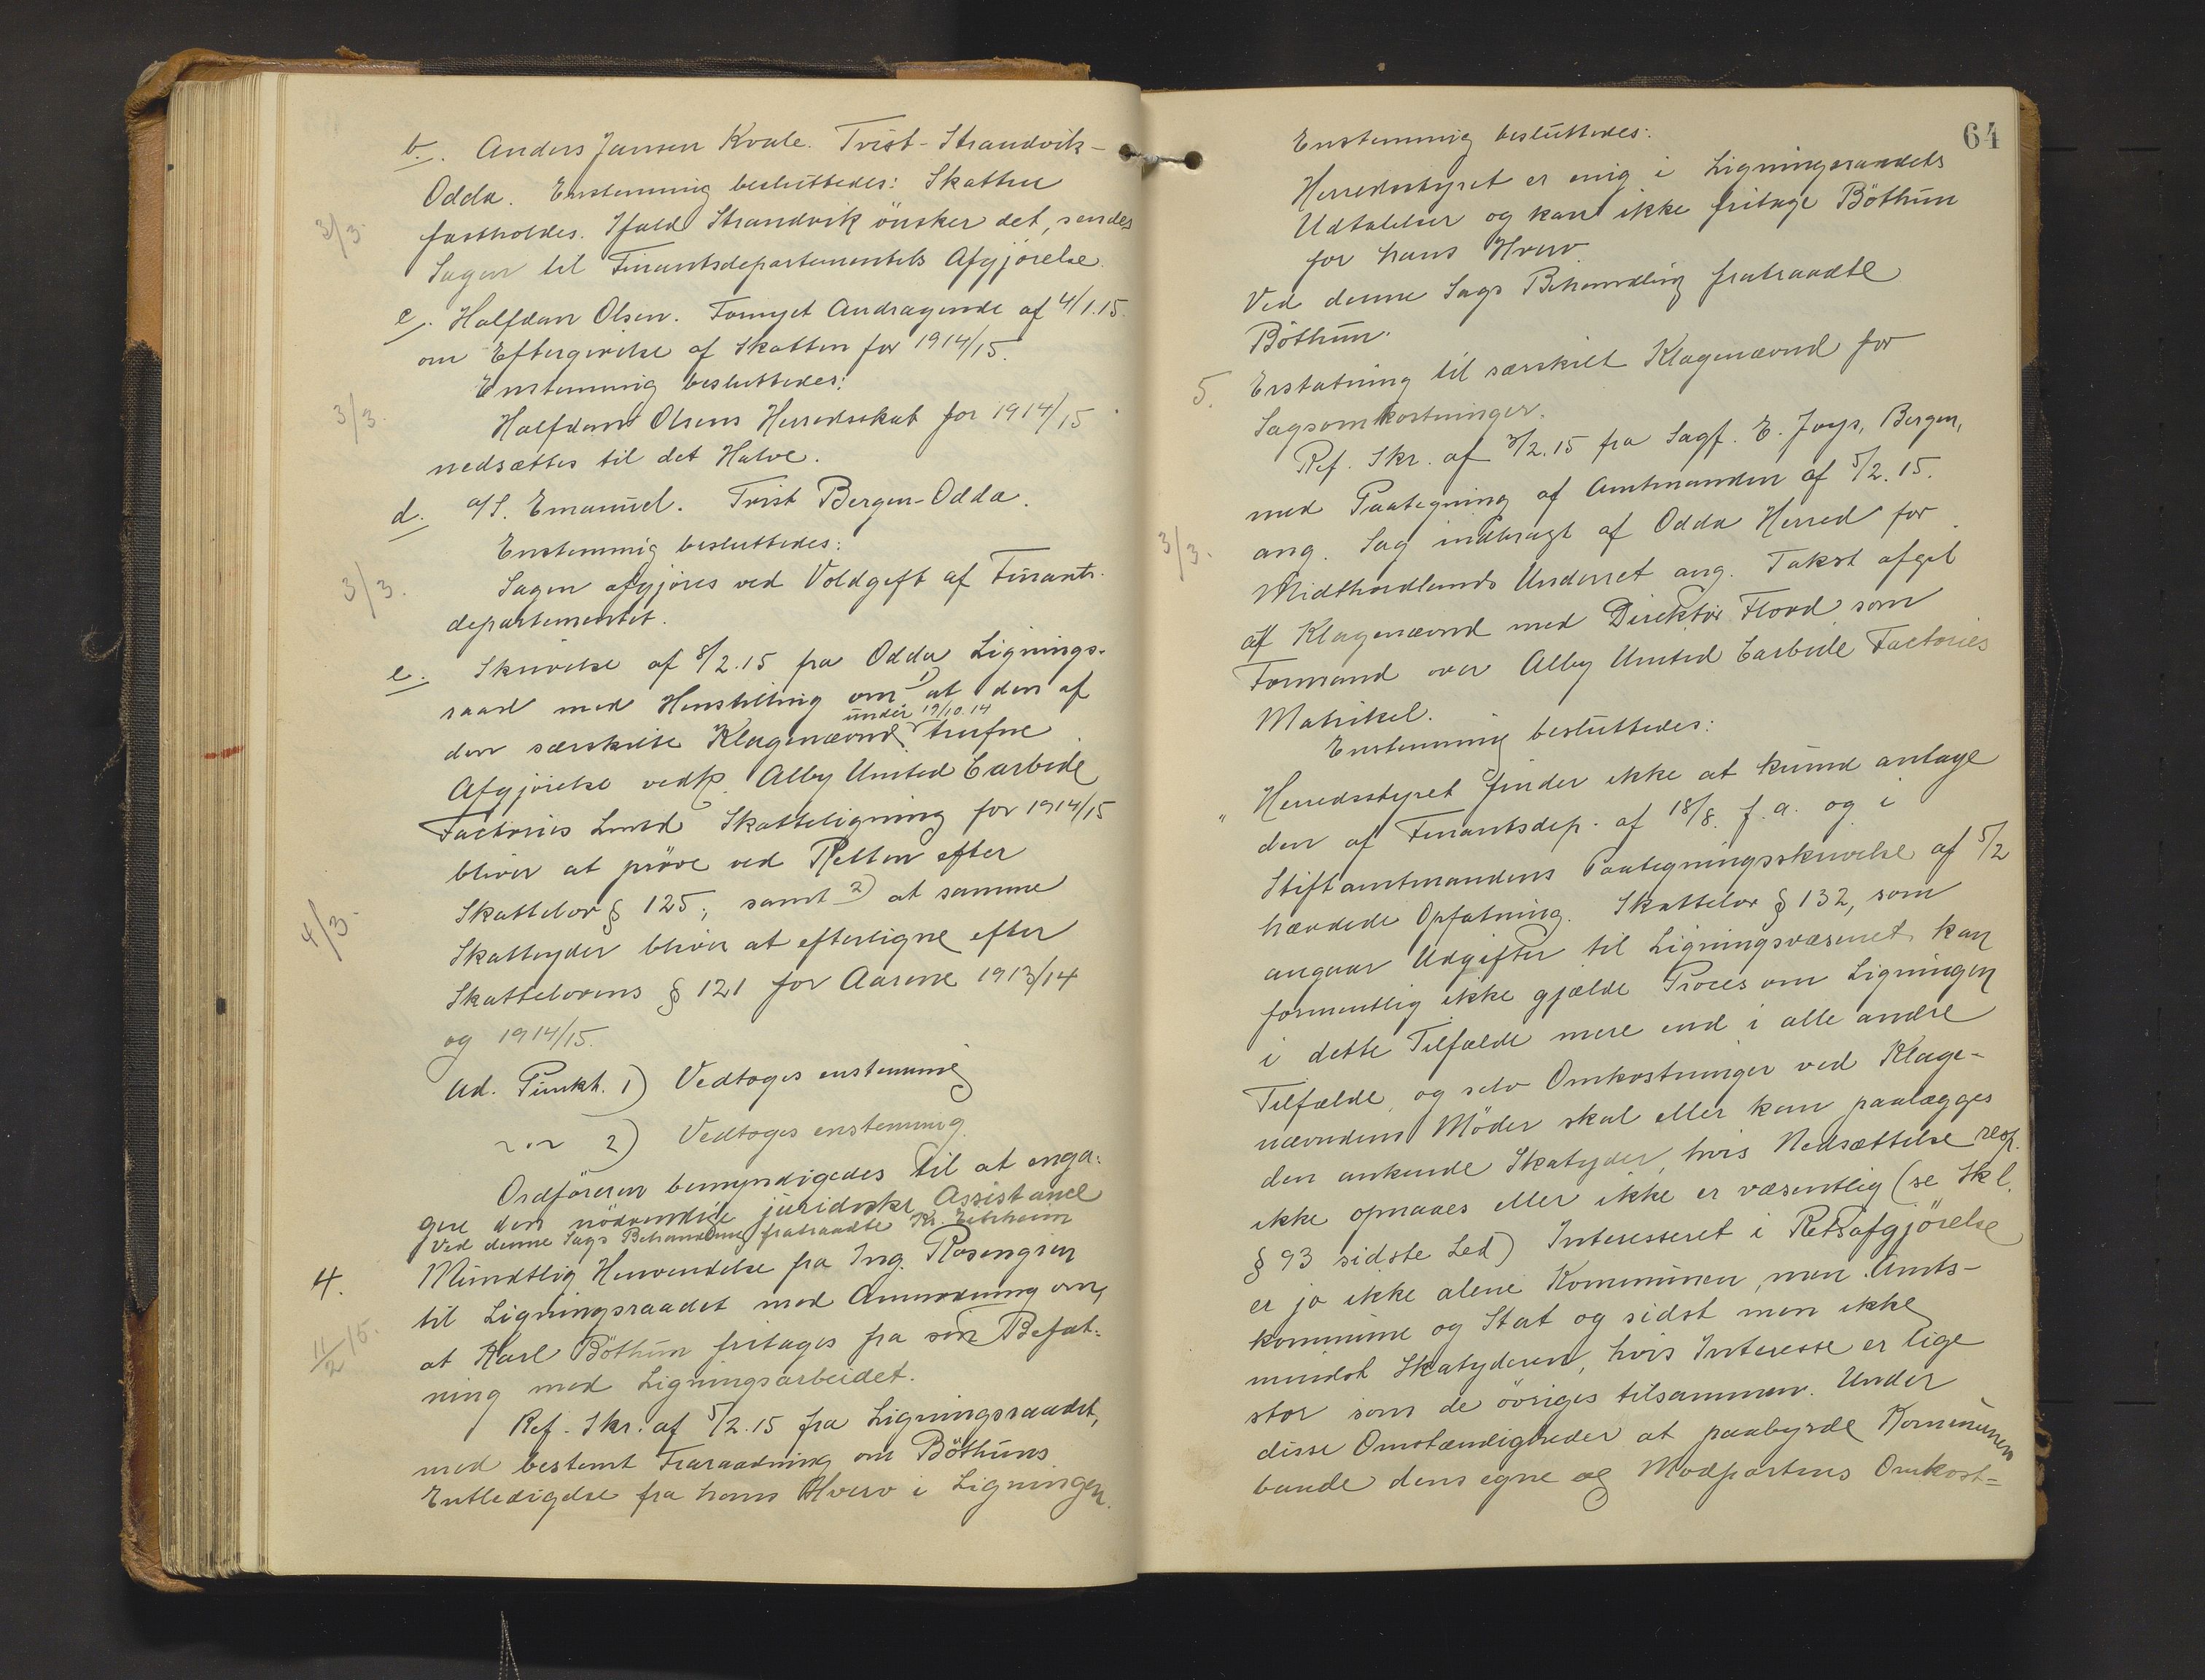 b. Anders Jansen Kvale. Tvist - Strandvik -
Odda. Enstemmig besluttedes: Skatten
3/3. fastholdes. Ifald Strandvik önsker det, sendes
Sagen til Finantsdepartementets Afgjörelse.
c. Halfdan Olsen. Fornyet Andragende af 4/1.15.
om Eftergivelse af Skatten for 1914/15.
Enstemmig besluttedes:
3/3. Halfdan Olsens Herredsskat for 1914/15
nedsættes til det Halve.
d. A/S. Emanuel. Tvist Bergen-Odda.
Enstemmig besluttedes:
3/3. Sagen afgjöres ved Voldgift af Finants-
departementet.
e. Skrivelse af 8/2.15 fra Odda Lignings-
raad med Henstilling om 1) at den af
den særskilte Klagenævnd under 19/10.14 trufne
Afgjörelse vedk. Alby United Carbide
Factories Lmtd Skatteligning for 1914/15
bliver at pröve ved Retten efter
Skattelov § 125; samt 2) at samme
4/3. Skatteyder bliver at efterligne efter
Skattelovens § 121 for Aarene 1913/14
og 1914/15.
Ad. Punkt. 1) Vedtoges enstemmig
" " 2) Vedtoges enstemmig
Ordföreren bemyndigedes til at enga-
gere den nödvendige juridiske Assistance
Ved denne Sags Behandling fratraadte Kr. Eitrheim
4. Mundtlig Henvendelse fra Ing. Rosengren
til Ligningsraadet med Anmodning om,
11/2 15. at Karl Böthun fritages fra sin Befat-
ning med Ligningsarbeidet.
Ref. Skr. af 5/2.15 fra Ligningsraadet,
med bestemt Fraraadning om Böthuns
Entledigelse fra hans Hverv i Ligningen.
64
Enstemmig besluttedes:
Herredsstyret er enig i Ligningsraadets
Udtalelser og kan ikke fritage Böthun
for hans Hverv.
Ved denne Sags Behandling fratraadte
Böthun.
5. Erstatning til særskilt Klagenævnd for
Sagsomkostninger.
Ref. Skr. af 3/2.15 fra Sagf. E. Joys, Bergen,
med Paategning af Amtmanden af 5/2.15.
3/3. ang. Sag indbragt af Odda Herred for
Midthordlands Underret ang. Takst afgit
af Klagenævnd med Direktör Flood som
Formand over Alby United Carbide Factories
Matrikel.
Enstemmig besluttedes:
" Herredsstyret finder ikke at kunne antage
den af Finantsdep. af 18/8. f.a. og i
Stiftamtmandens Paategningsskrivelse af 5/2
hævdede Opfatning. Skattelov § 132, som
angaar Udgifter til Ligningsvæsenet, kan
formentlig ikke gjælde Proces om Ligningen
i dette Tilfælde mere end i alle andre
Tilfælde, og selv Omkostninger ved Klage-
nævndens Möder skal eller kan paalægges
den ankende Skatyder, hvis Nedsættelse resp.
ikke opnaaes eller ikke er væsentlig (se Skl.
§ 93 sidste Led) Interesseret i Retsafgjörelse
er jo ikke alene Kommunen, men Amts-
kommune og Stat og sidst men ikke
mindst Skatyderen, hvis Interesse er lige
stor som de övriges tilsammen. Under
disse Omstændigheder at paabyrde Kommunen
baade dens egne og Modpartens Omkost=